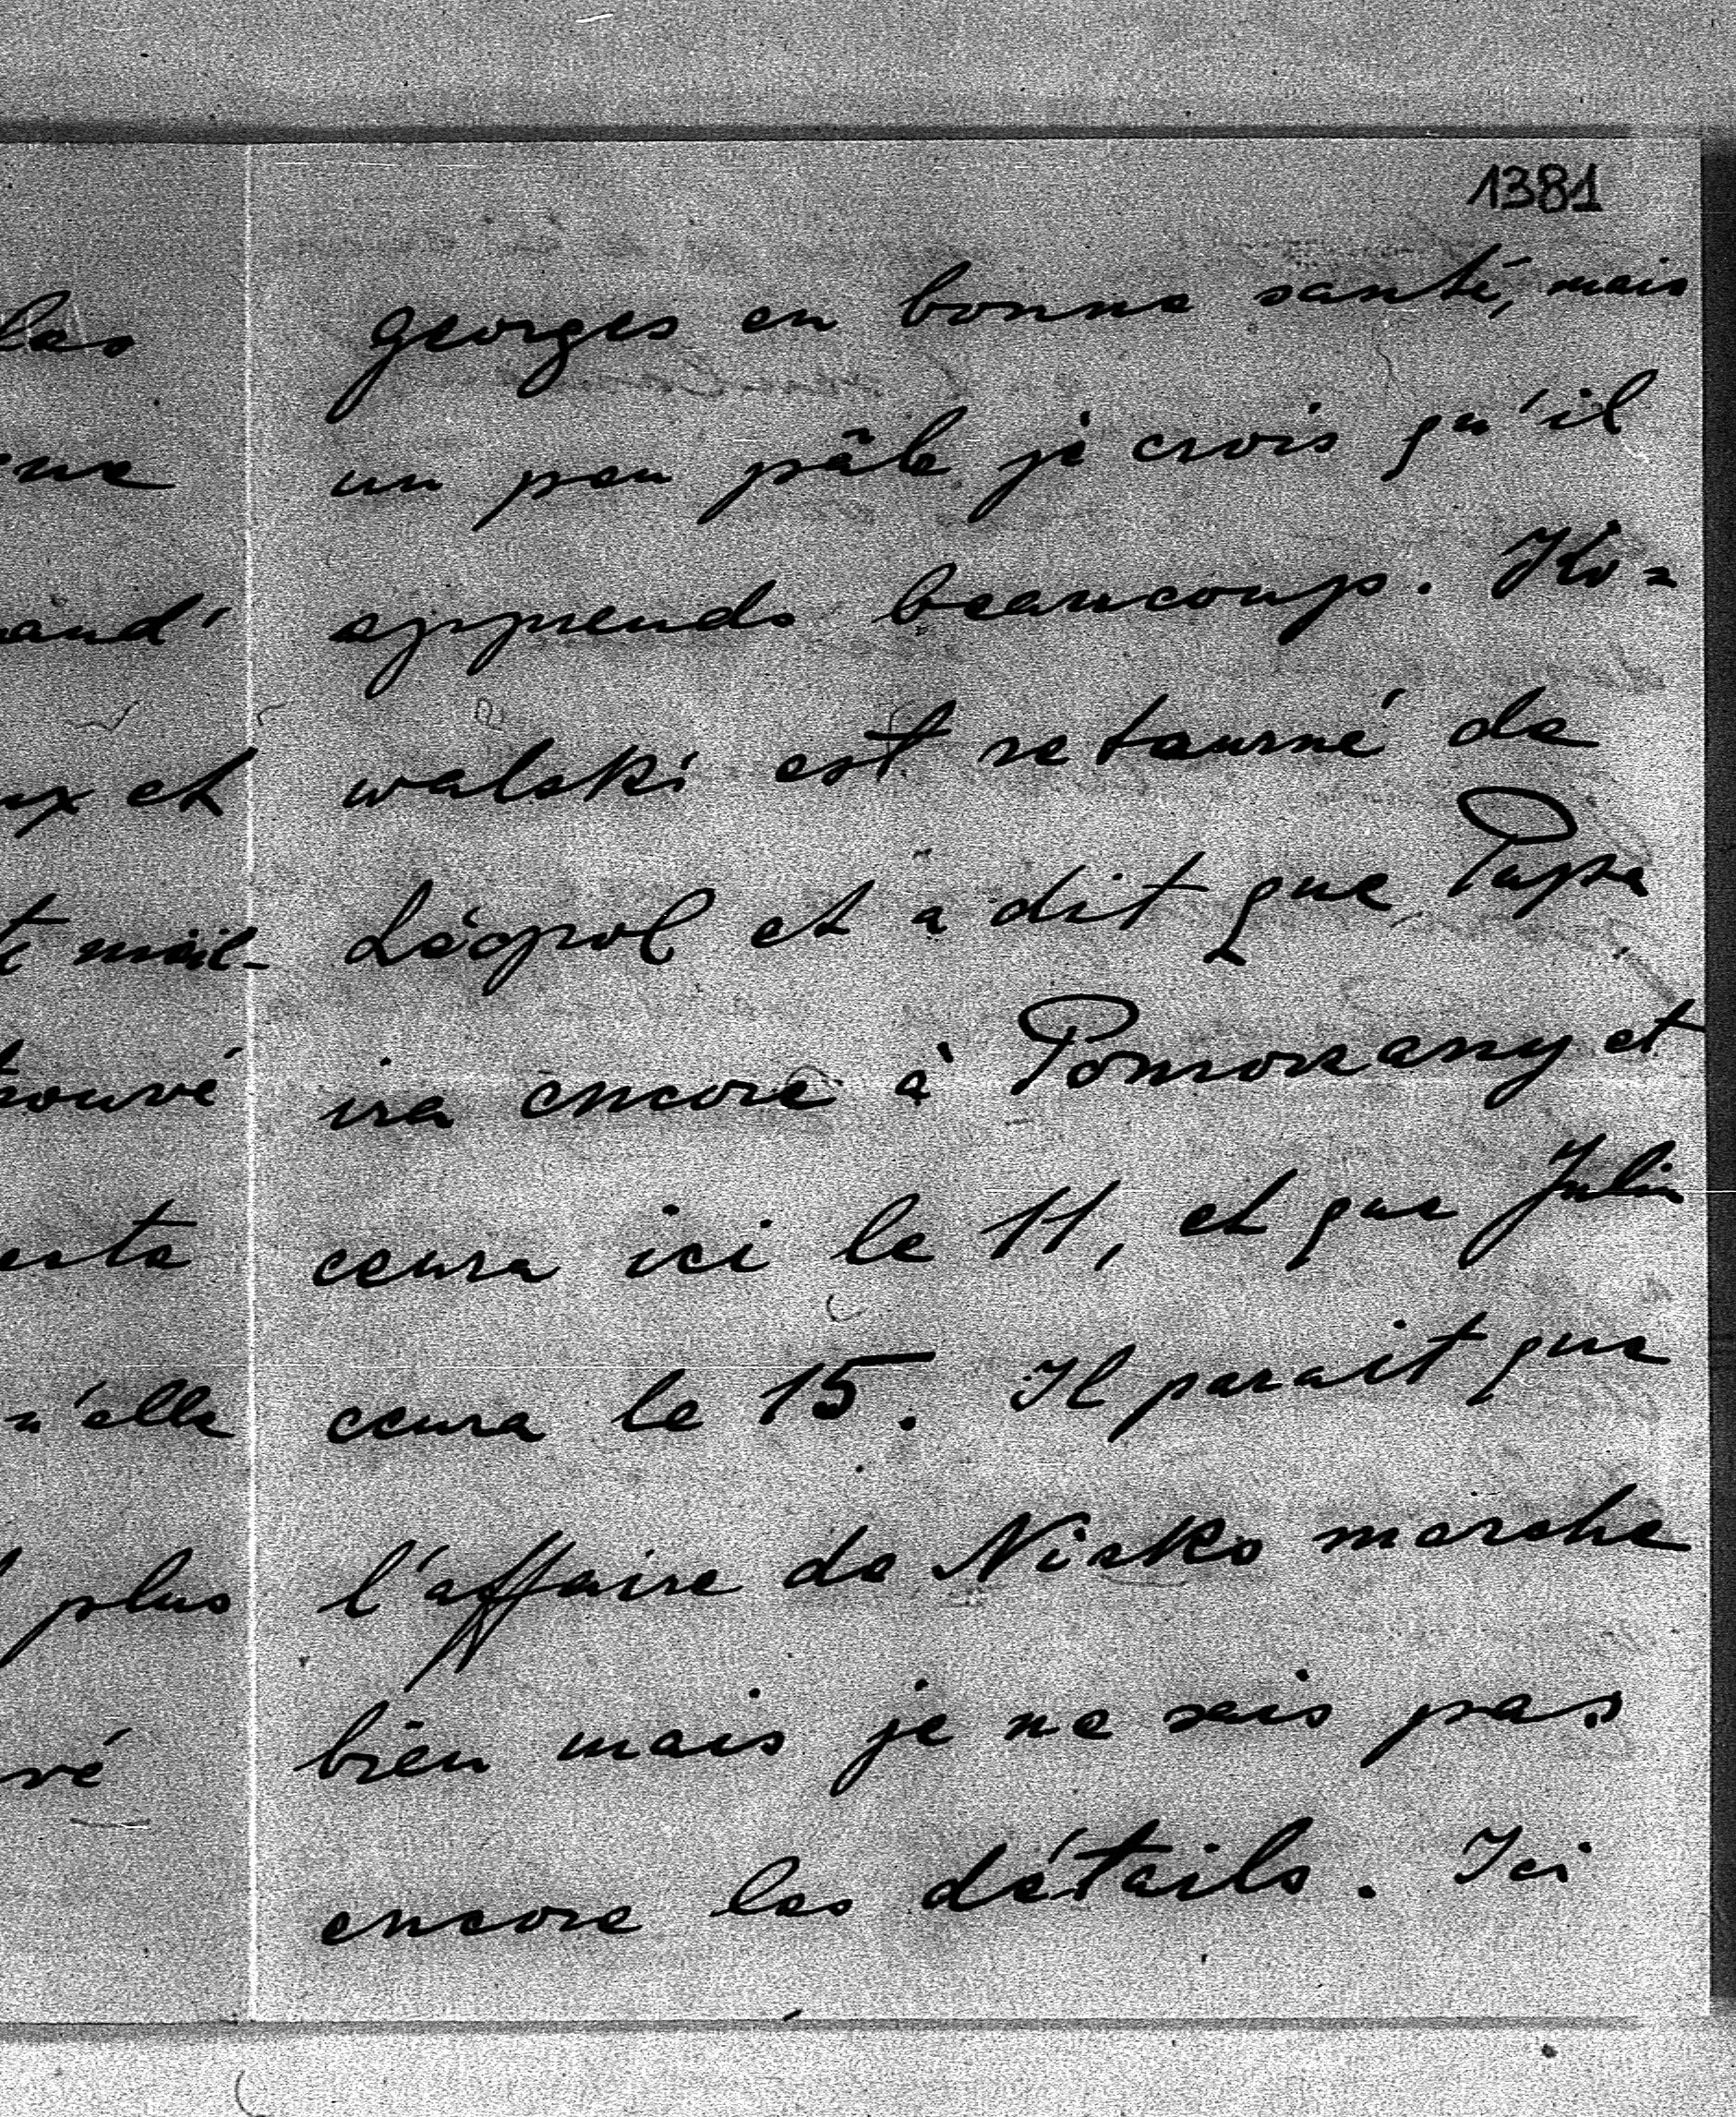 1381
georges en bonne santé, mais
un peu pâle je crois qu'il
apprends beaucoup. Ko=
walski est retourné de
Léopol et a dit que Papa
ira encore à Pomorzany et
ceura ici le 11, et que Julia
ceura le 15. Il parait que
l'affaire de Nisko marche
bien mais je ne sais pas
encore les détails. Ici
las
et
mail-
trouvé
n'elle
plus